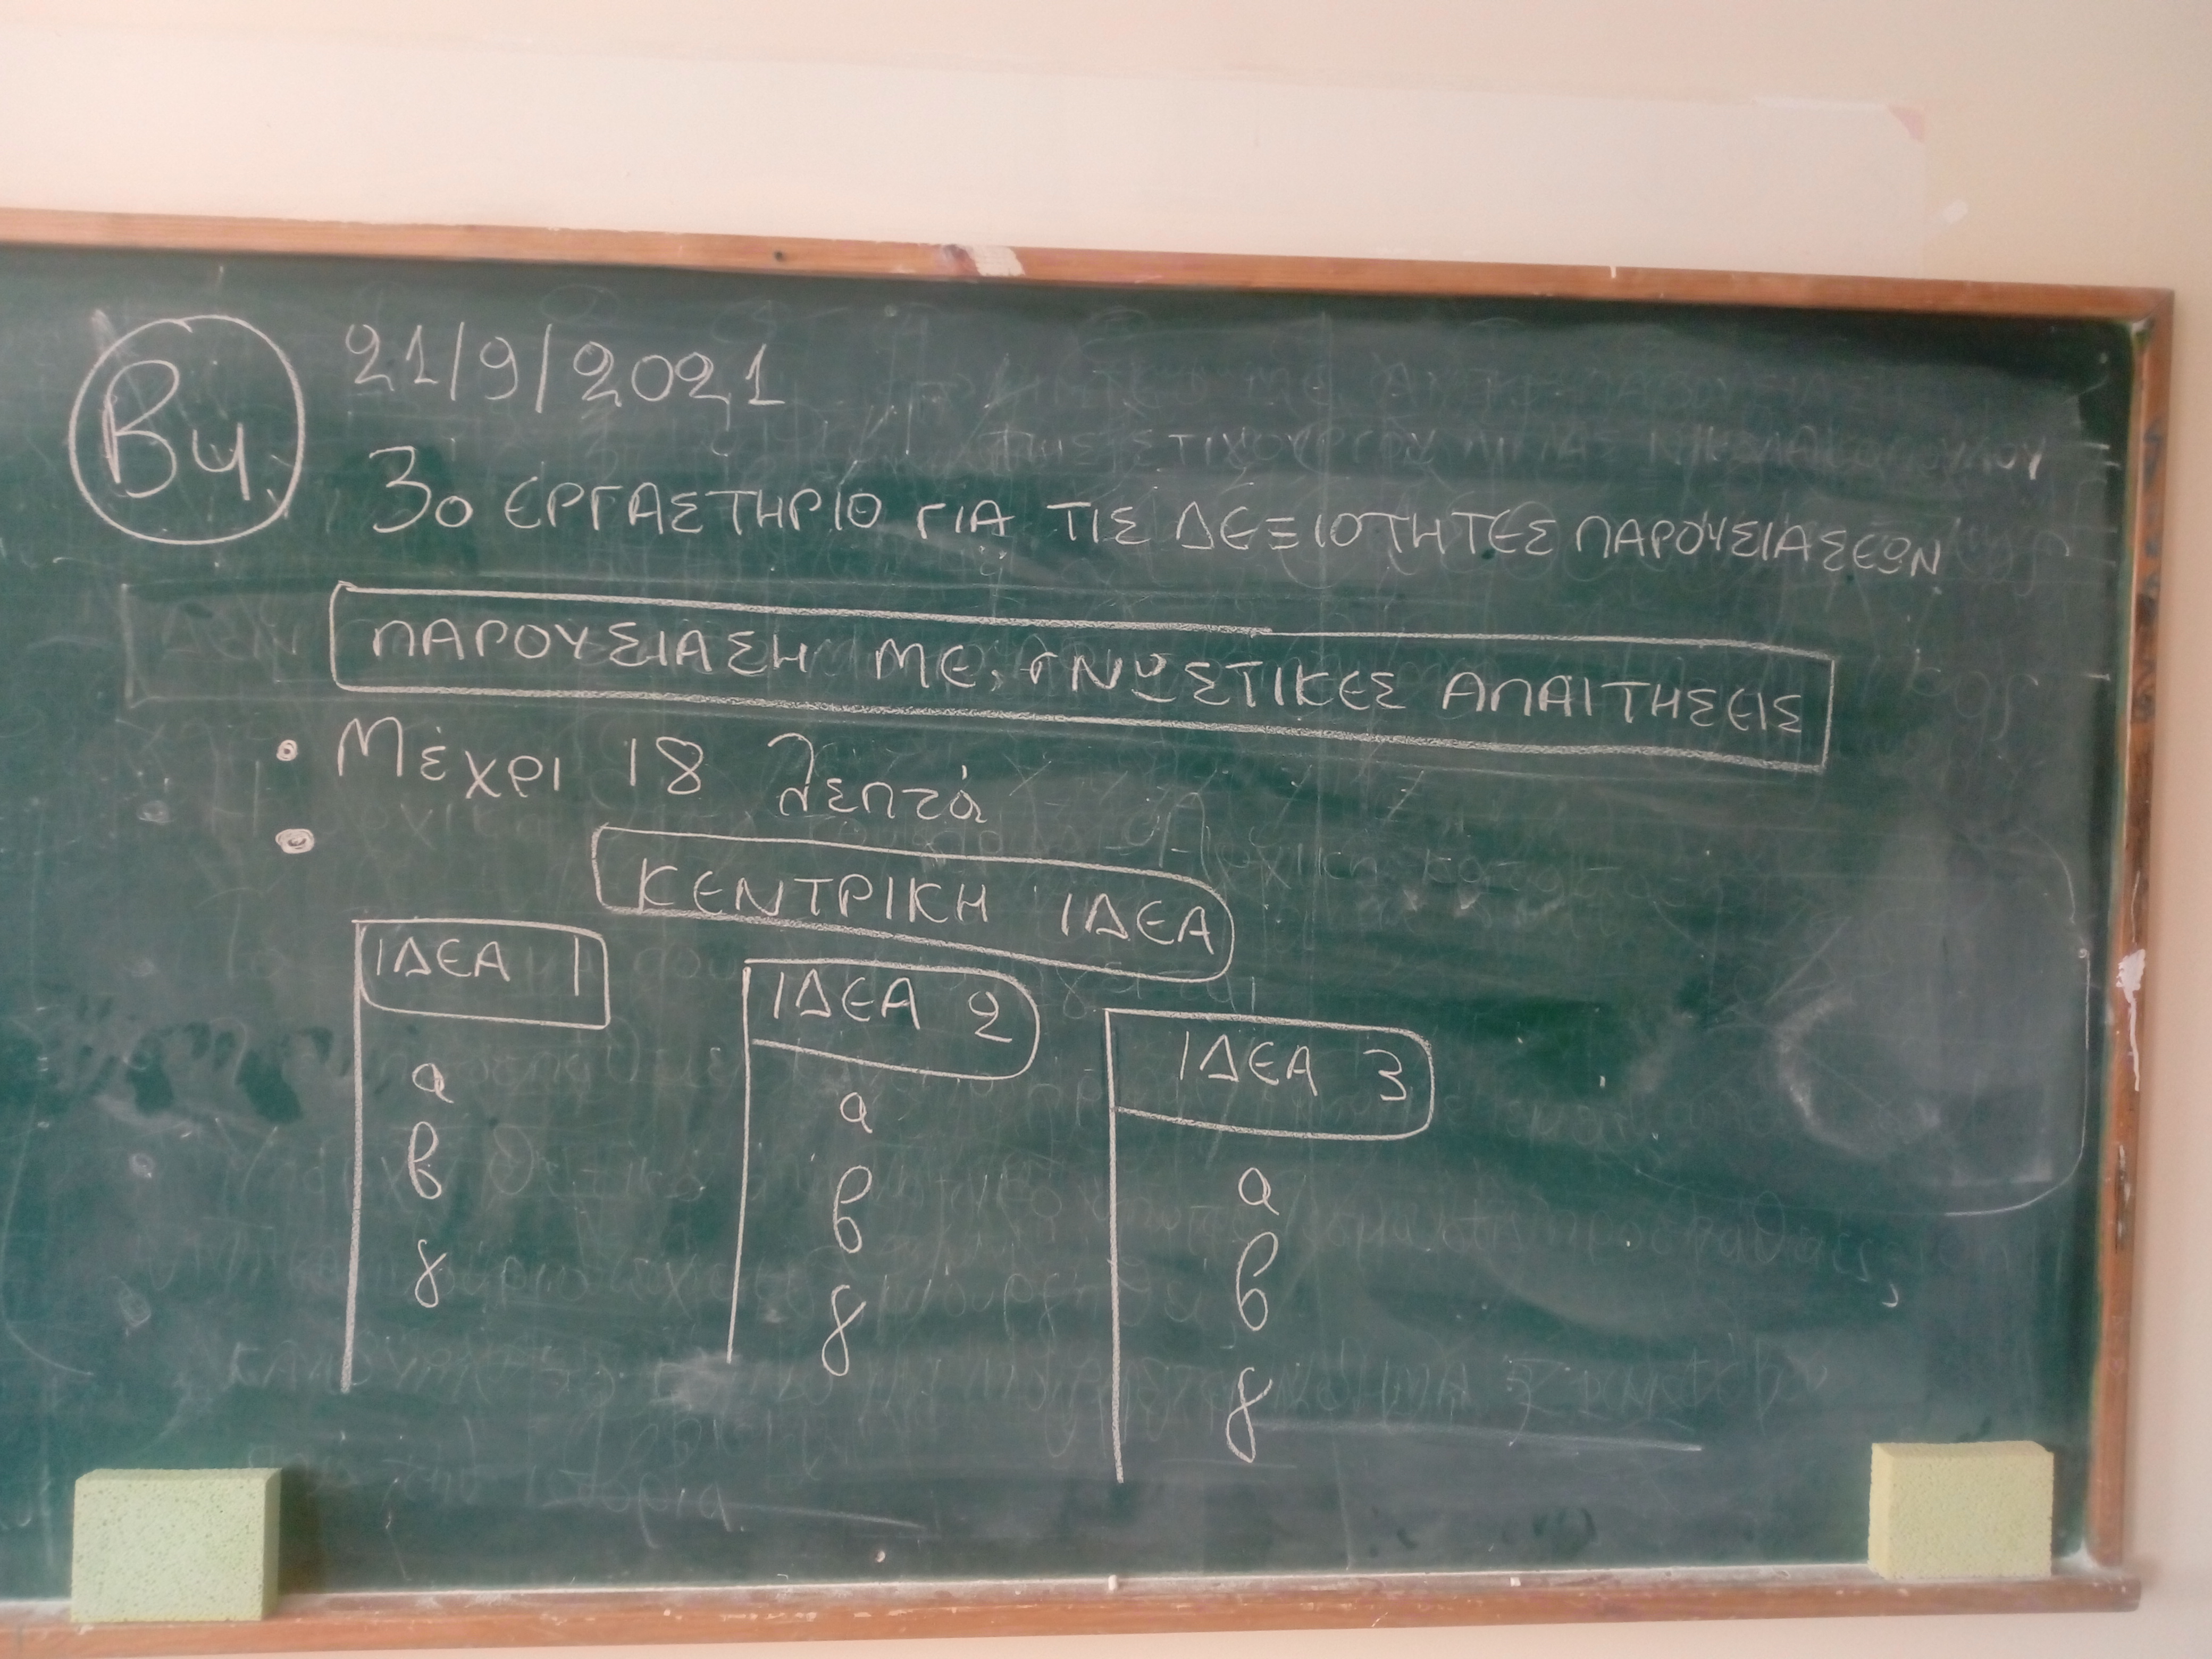 Β4
21/9/2021
3ο ΕΡΓΑΣΤΗΡΙΟ ΓΙΑ ΤΙΣ ΔΕΞΙΟΤΗΤΕΣ ΠΑΡΟΥΣΙΑΣΕΩΝ
ΠΑΡΟΥΣΙΑΣΗ ΜΕ ΓΝΩΣΤΙΚΕΣ ΑΠΑΙΤΗΣΕΙΣ
• Μέχρι 18 λεπτά
•
ΚΕΝΤΡΙΚΗ ΙΔΕΑ
ΙΔΕΑ 1
α
β
γ
ΙΔΕΑ 2
α
β
γ
ΙΔΕΑ 3
α
β
γ